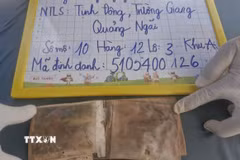 NTLS: Tịnh Đông, Trường Giang
Quảng Ngãi
Số mộ: 10 Hàng: 12 Lô: 3 Khu: A
Mã định danh: 5105400126
TTXVN